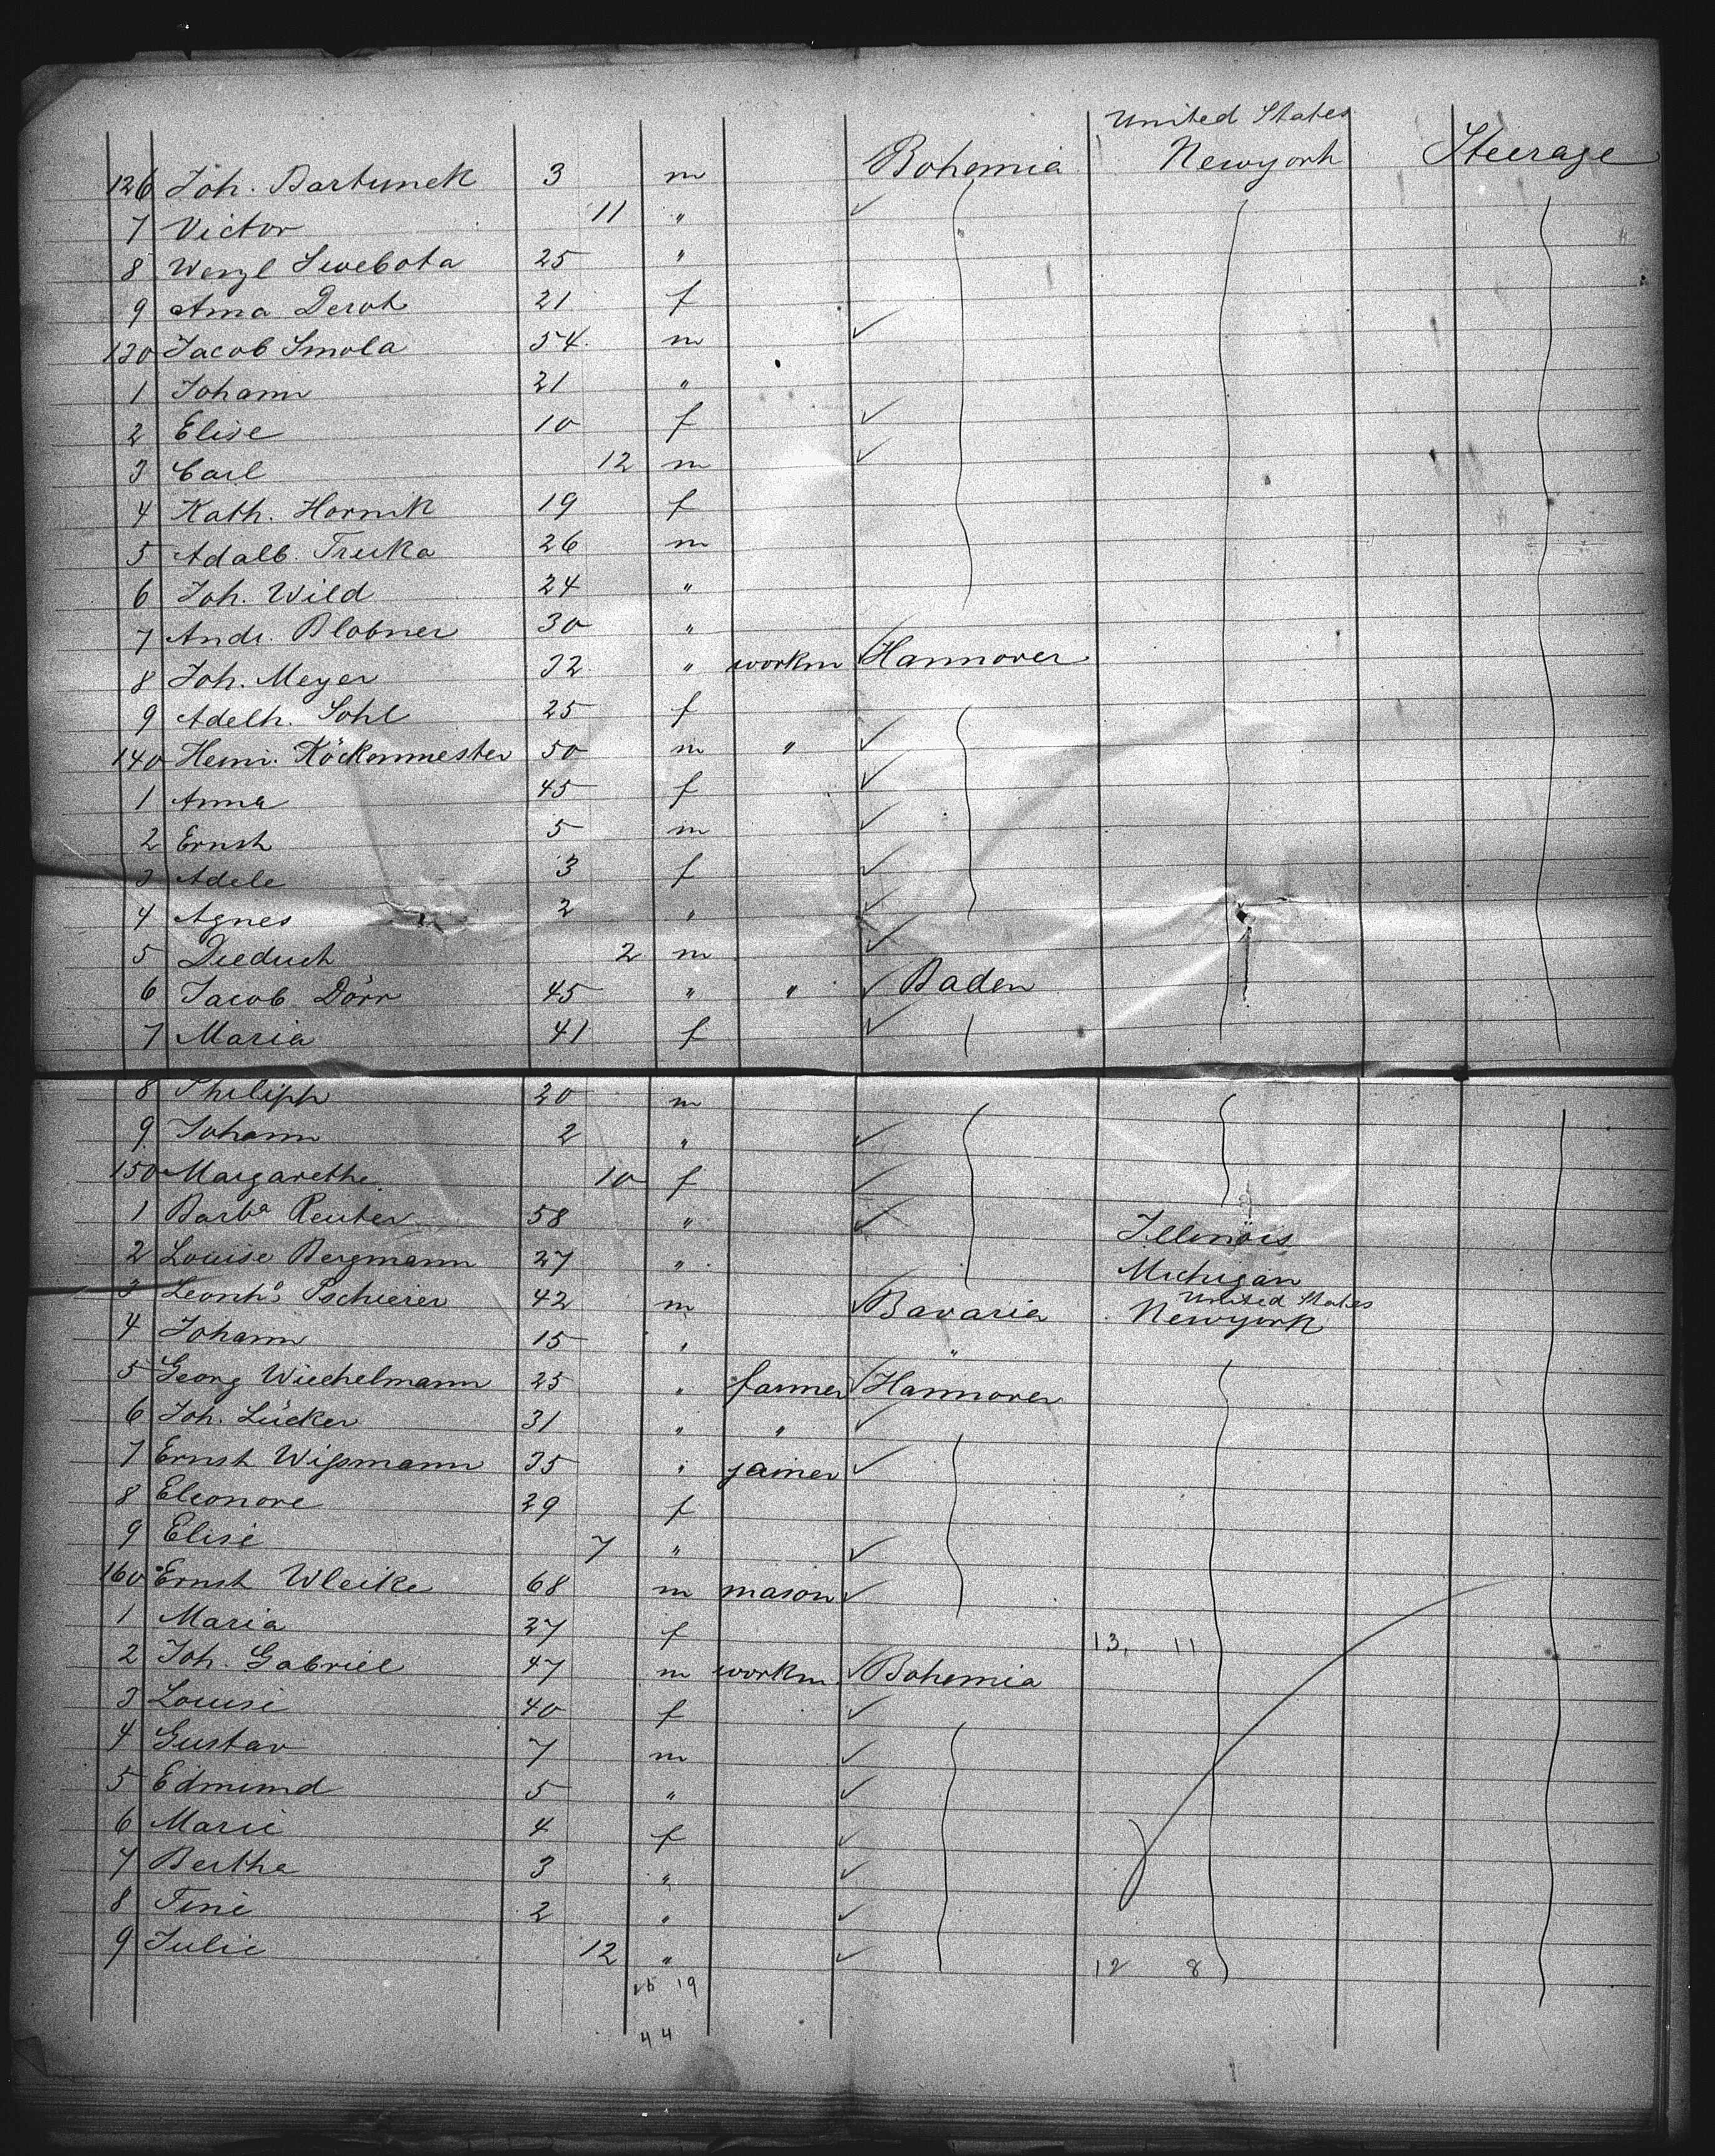 United States
126 Joh. Bartunek 3 m Bohemia Newyork Steerage
7 Victor 11 "
8 Wenzl Swebota 25 "
9 Anna 21 f
130 Jacob Smola 54 m
1 Johann 21 "
2 Elise 10 f
3 Carl 12 m
4 Kath. Hornik 19 f
5 Adalb. Truka 26 m
6 Joh. Wild 24 "
7 Andr. Blobner 30 "
8 Joh. Meyer 32 " workm Hannover
9 Adelh. Sohl 25 f
140 Heinr. Köckenmester 50 m "
1 Anna 45 f
2 Ernst 5 m
3 Adele 3 f
4 Agnes 2 "
5 Diedrich 2 m
6 Jacob Dörr 45 " " Baden
7 Maria 41 f
8 Philipp 20 m
9 Johann 2 "
150 Margarethe 10 f
1 Barba Reuter 58 " Illinois
2 Louise Bergmann 27 " Michigan
United States
3 Leonhd Pschierer 42 m Bavaria Newyork
4 Johann 15 " "
5 Georg Wiechelmann 25 " farmer Hannover
6 Joh. Lücker 31 " "
7 Ernst Wißmann 35 " joiner
8 Eleonore 29 f
9 Elise 7 "
160 Ernst Wleike 68 m mason
1 Maria 27 f 13, 11
2 Joh. Gabriel 47 m workm Bohemia
3 Louise 40 f
4 Gustav 7 m
5 Edmund 5 "
6 Marie 4 f
7 Bertha 3 "
8 Tini 2 "
9 Julie 12 " 12 8
25 19
44